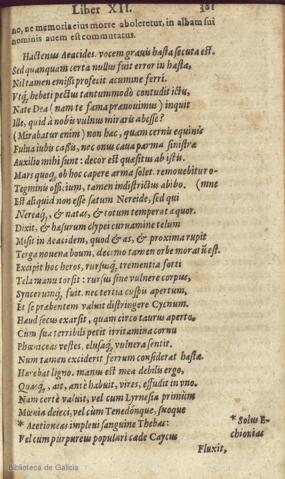 Liber XII. 301
no, ne memoria eius morte aboleretur, in albam sui
nominis auem est commutatus.
Hactenus Aeacides. vocem grauis hasta secuta est.
Sed quanquam certa nullus fuit error in hasta,
Nil tamen emissi profecit acumine ferri.
Vtq́, hebeti pectus tantummodò contudit ictu,
Nate Dea (nam te fama prænouimus) inquit
Ille, quid à nobis vulnus miraris abesse?
(Mirabatur enim) non hæc, quam cernis equinis
Fulua iubis cassis, nec onus caua parma sinistræ
Auxilio mihi sunt: decor est quæsitus ab istis.
Mars quoq, ob hoc capere arma solet. remouebitur o-
Tegminis officium, tamen indistrictus abibo. (mne
Est aliquid non esse satum Nereide, sed qui
Nereaq́, & natas, & totum temperat æquor.
Dixit, & hæsurum clypei curuamine telum
Misit in Aeacidem, quod & æs, & proxima rupit
Terga nouena boum, decimo tamen orbe moratū est.
Excipit hoc heros, rursusq́, trementia forti
Tela manu torsit: rursus sine vulnere corpus,
Syncerumq́, fuit. nec tertia cuspis apertum,
Et se præbentem valuit distringere Cycnum.
Haud secus exarsit, quam circo taurus aperto,
Cùm sua terribili petit irritamina cornu
Phœniceas vestes, elusaq́, vulnera sentit.
Num tamen exciderit ferrum considerat hastæ.
Hærebat ligno. manus est mea debilis ergo,
Quasq́, ait, antè habuit vires, effudit in vno.
Nam certè valuit, vel cum Lyrnesia primùm
Mœnia deieci, vel cum Tenedónque, suoque
* Aetioneas impleui sanguine Thebas:
Vel cum purpureus populari cæde Caycus
* Solus E-
chionias
Fluxit,
Biblioteca de Galicia